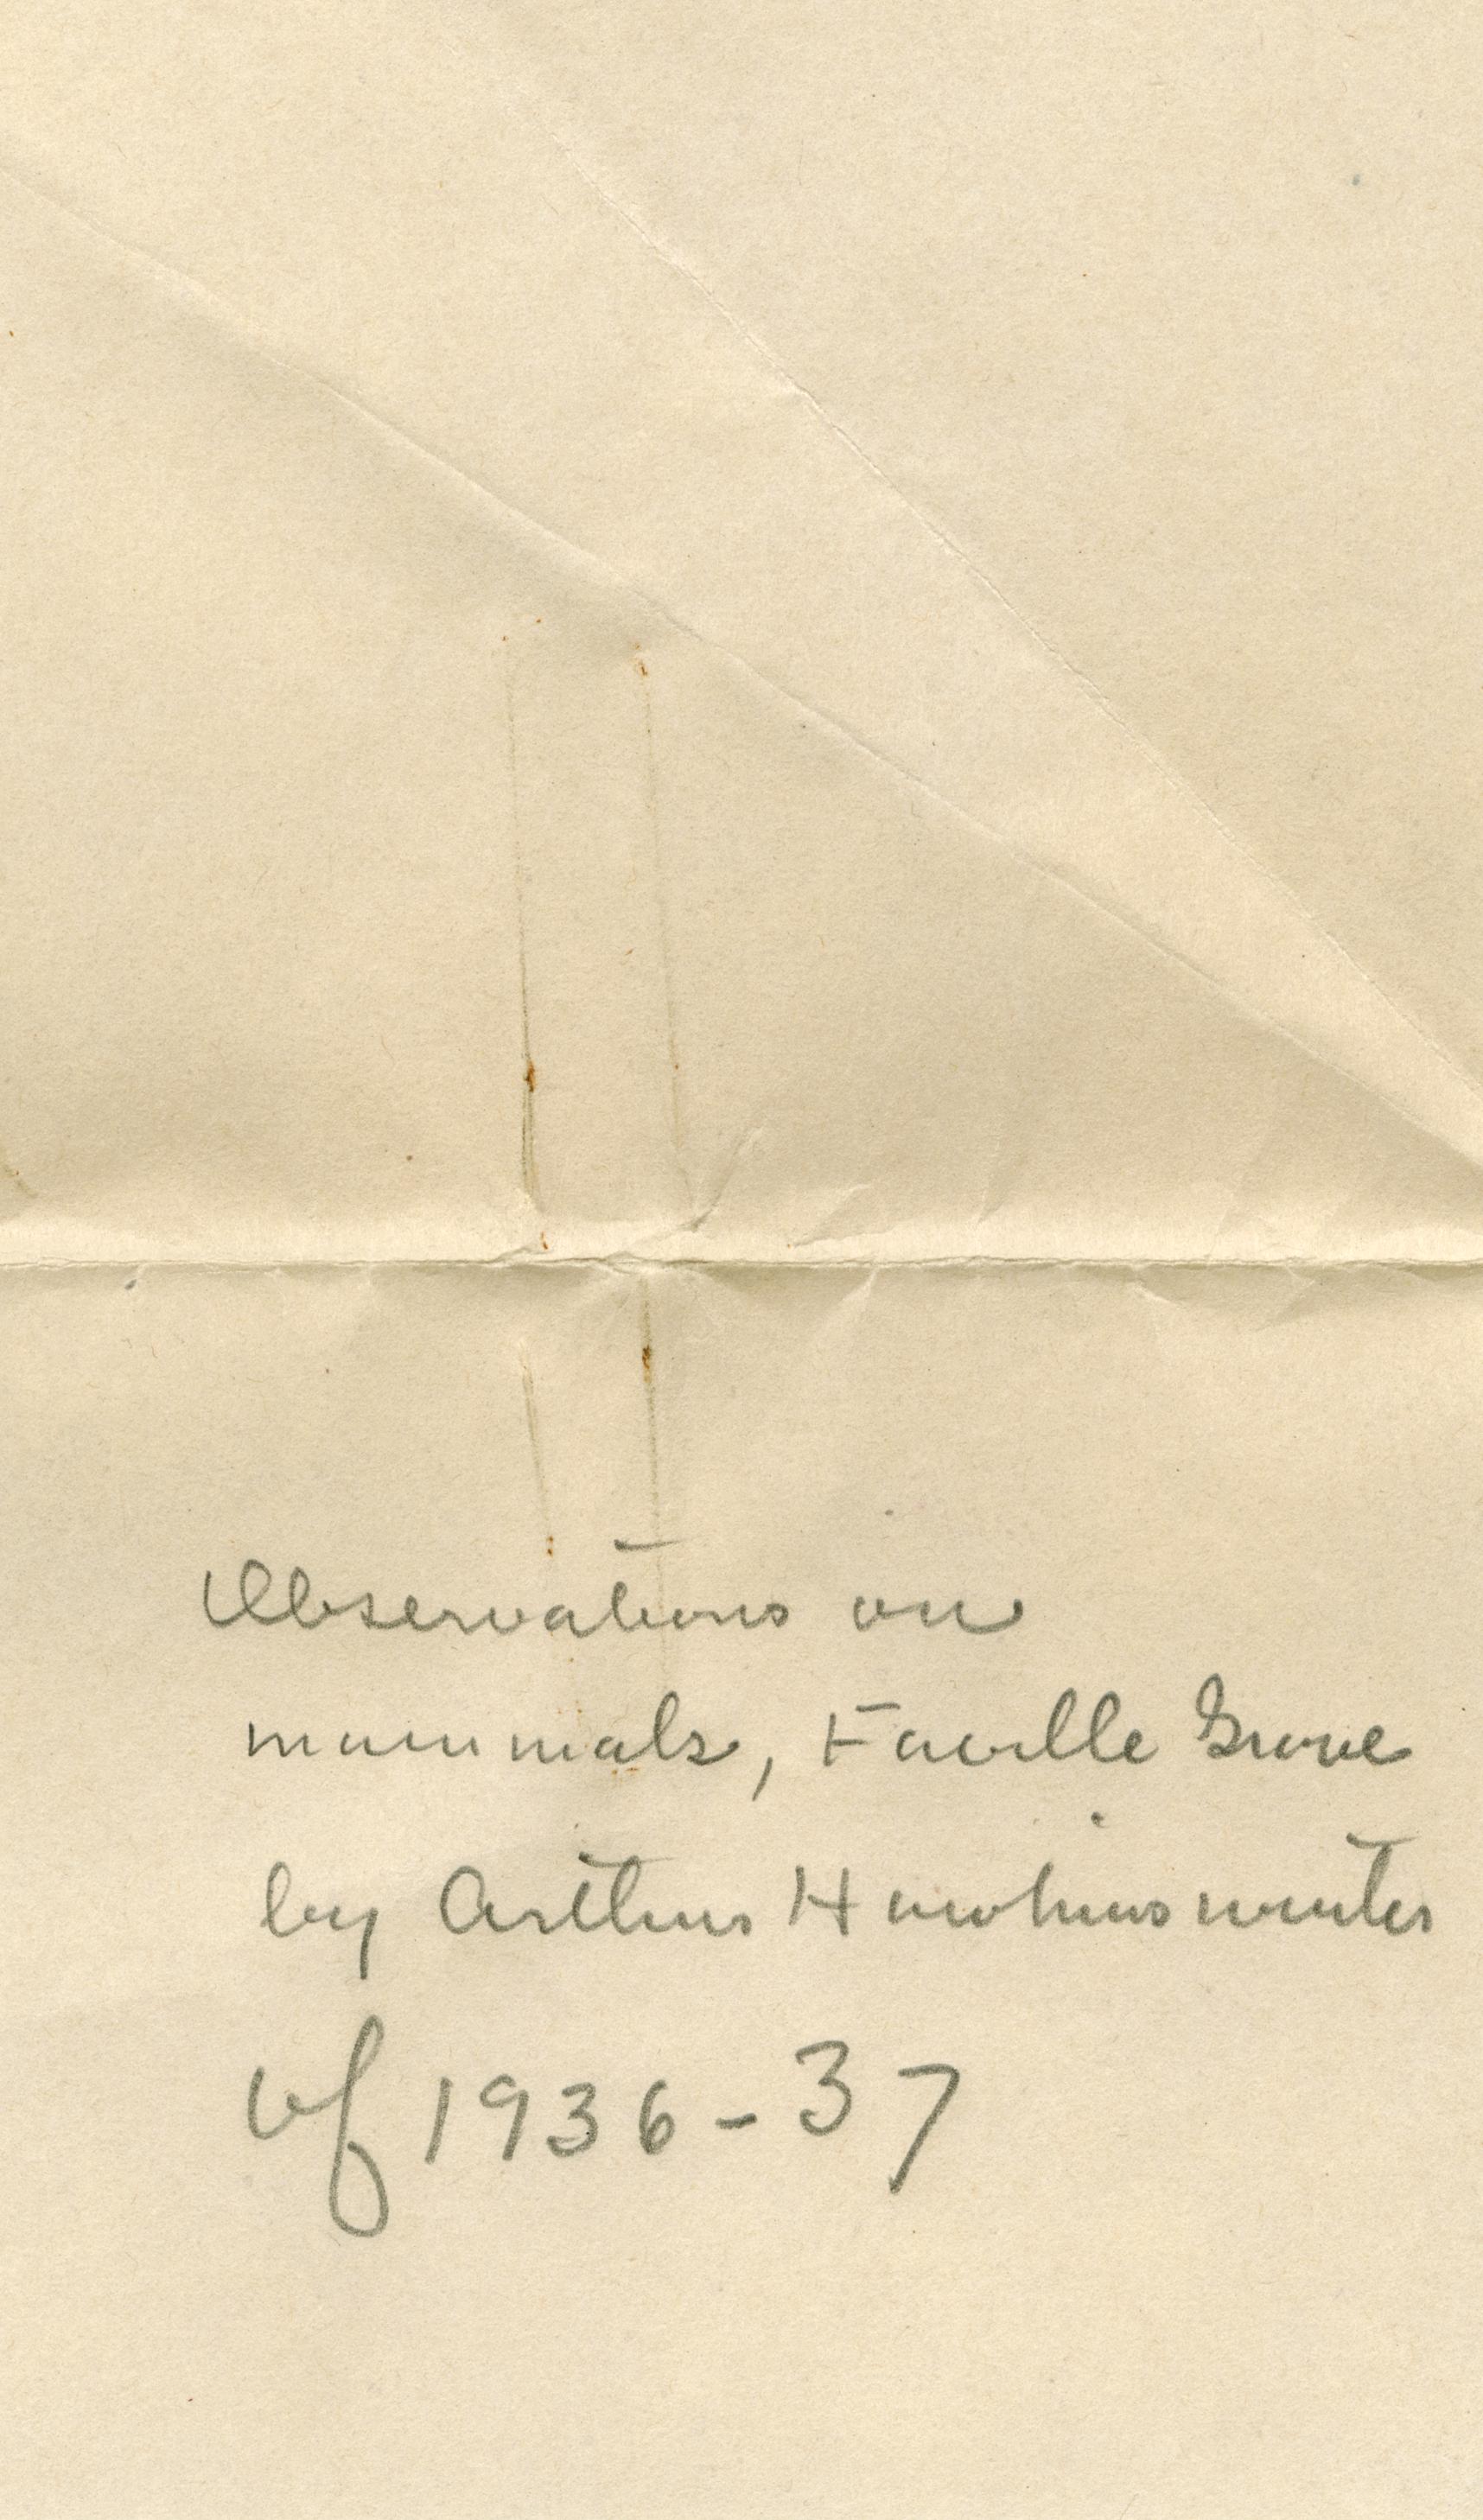 Observations on
mammals, Faville Grove
by Arthur Hawkins winter
of 1936-37